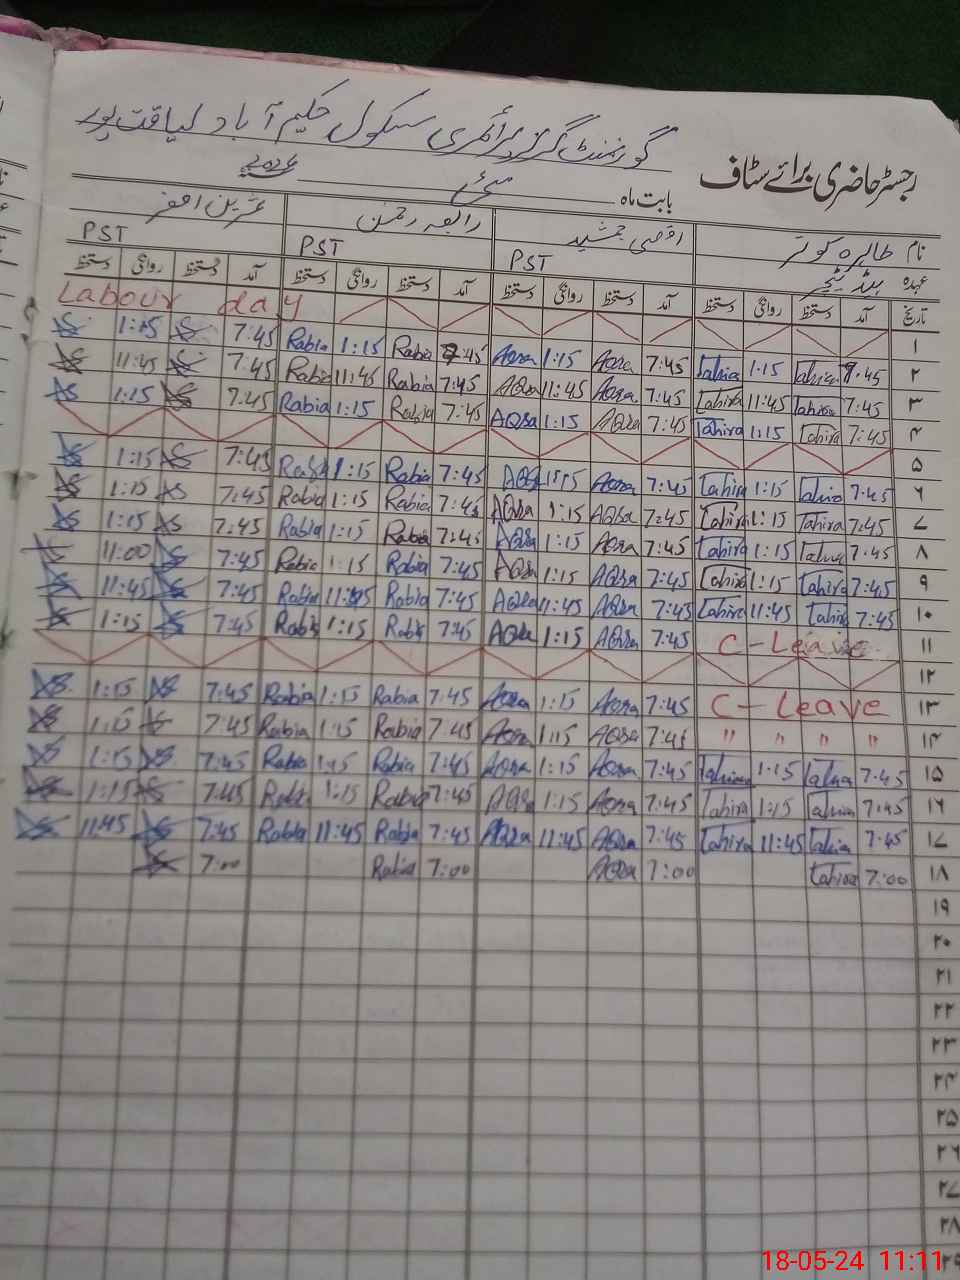 گورنمنٹ گرلز پرائمری سکول حکیم آباد لیاقت پور
رجسٹر حاضری برائے سٹاف
بابت ماہ مئی
نام طاہرہ کوثر اقصیٰ جمشید رابعہ رحمن
عہدہ ہیڈ ٹیچر PST PST PST
تاریخ آمد دستخط روانگی دستخط آمد دستخط روانگی دستخط آمد دستخط روانگی دستخط آمد دستخط روانگی دستخط
۱ Labour day
۲ 7:45 Tahira 1:15 Tahira 7:45 Aqsa 1:15 Aqsa 7:45 Rabia 1:15 Rabia 7:45 1:15
۳ 7:45 Tahira 11:45 Tahira 7:45 Aqsa 11:45 AQsa 7:45 Rabia 11:45 Rabia 7:45 11:45
۴ 7:45 Tahira 1:15 Tahira 7:45 AQsa 1:15 AQsa 7:45 Rabia 1:15 Rabia 7:45 1:15
۵
۶ 7:45 Tahira 1:15 Tahira 7:45 Aqsa 1:15 AQsa 7:45 Rabia 1:15 Rabia 7:45 1:15
۷ 7:45 Tahira 1:15 Tahira 7:45 AQsa 1:15 AQsa 7:45 Rabia 1:15 Rabia 7:45 1:15
۸ 7:45 Tahira 1:15 Tahira 7:45 Aqsa 1:15 AQsa 7:45 Rabia 1:15 Rabia 7:45 1:15
۹ 7:45 Tahira 1:15 Tahira 7:45 AQsa 1:15 AQsa 7:45 Rabia 1:15 Rabia 7:45 11:00
۱۰ 7:45 Tahira 11:45 Tahira 7:45 AQsa 11:45 AQsa 7:45 Rabia 11:45 Rabia 7:45 11:45
۱۱ C-Leave 7:45 AQsa 1:15 AQsa 7:45 Rabia 1:15 Rabia 7:45 1:15
۱۲
۱۳ C-Leave 7:45 Aqsa 1:15 Aqsa 7:45 Rabia 1:15 Rabia 7:45 1:15
۱۴ " " " " 7:45 AQsa 1:15 Aqsa 7:45 Rabia 1:15 Rabia 7:45 1:15
۱۵ 7:45 Tahira 1:15 Tahira 7:45 Aqsa 1:15 Aqsa 7:45 Rabia 1:15 Rabia 7:45 1:15
۱۶ 7:45 Tahira 1:15 Tahira 7:45 Aqsa 1:15 AQsa 7:45 Rabia 1:15 Rabia 7:45 1:15
۱۷ 7:45 Tahira 11:45 Tahira 7:45 AQsa 11:45 AQsa 7:45 Rabia 11:45 Rabia 7:45 11:45
۱۸ 7:00 Tahira 7:00 AQsa 7:00 Rabia 7:00
۱۹
۲۰
۲۱
۲۲
۲۳
۲۴
۲۵
۲۶
۲۷
۲۸
18-05-24 11:11